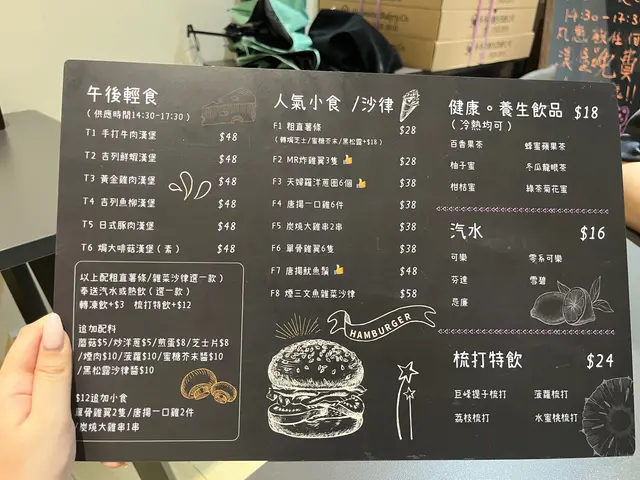 午後輕食
(供應時間14:30-17:30)
T1 手打牛肉漢堡 $48
T2 吉列鮮蝦漢堡 $48
T3 黃金雞肉漢堡 $48
T4 吉列魚柳漢堡 $48
T5 日式豚肉漢堡 $48
T6 焗大啡菇漢堡(素) $48
以上配粗直薯條/雜菜沙律(選一款)
奉送汽水或熱飲(選一款)
轉凍飲+$3 梳打特飲+$12
追加配料
蘑菇$5/炒洋蔥$5/煎蛋$8/芝士片$8
/煙肉$10/菠蘿$10/蜜糖芥末醬$10
/黑松露沙律醬$10
$12追加小食
單骨雞翼2隻/唐揚一口雞2件
/炭燒大雞串1串
人氣小食 /沙律
F1 粗直薯條 $28
(轉焗芝士/蜜糖芥末/黑松露+$18)
F2 MR炸雞翼3隻 $28
F3 天婦羅洋蔥圈6個 $38
F4 唐揚一口雞6件 $38
F5 炭燒大雞串2串 $38
F6 單骨雞翼6隻 $38
F7 唐揚魷魚鬚 $48
F8 煙三文魚雜菜沙律 $58
HAMBURGER
健康。養生飲品 $18
(冷熱均可)
百香果茶 蜂蜜蘋果茶
柚子蜜 冬瓜龍眼茶
柑桔蜜 綠茶菊花蜜
汽水 $16
可樂 零系可樂
芬達 雪碧
忌廉
梳打特飲 $24
巨峰提子梳打 菠蘿梳打
荔枝梳打 水蜜桃梳打
14:30-17:3